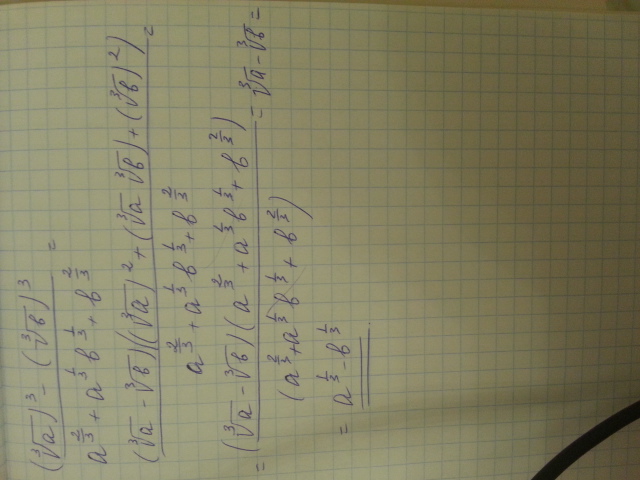 (∛a)³ - (∛b)³ =
a^(2/3) + a^(1/3) b^(1/3) + b^(2/3)
(∛a - ∛b)((∛a)² + (∛a ∛b) + (∛b)²) =
a^(2/3) + a^(1/3) b^(1/3) + b^(2/3)
= (∛a - ∛b)(a^(2/3) + a^(1/3) b^(1/3) + b^(2/3)) = ∛a - ∛b =
(a^(2/3) + a^(1/3) b^(1/3) + b^(2/3))
= a^(1/3) - b^(1/3)